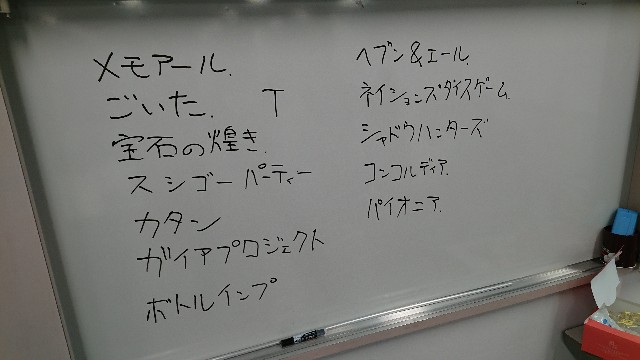 メモアール.
ごいた. T
宝石の煌き.
スシゴーパーティー
カタン
ガイアプロジェクト
ボトルインプ
ヘブン&エール.
ネイションズダイスゲーム.
シャドウハンターズ
コンコルディア.
パイオニア.